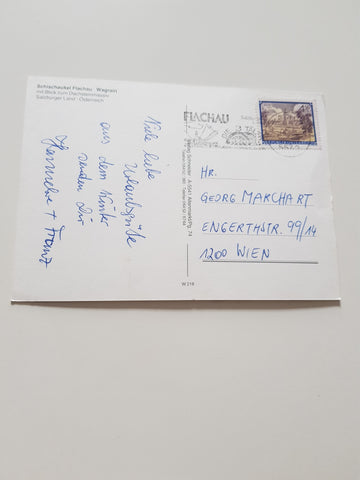 Schischaukel Flachau Wagrain
mit Blick zum Dachsteinmassiv
Salzburger Land Österreich
Viele liebe
Urlaubsgrüße
aus dem
senden Dir
+ Franz
FLACHAU
HR.
GEORG MARCHART
ENGERTHSTR. 99/14
1200 WIEN
W 219